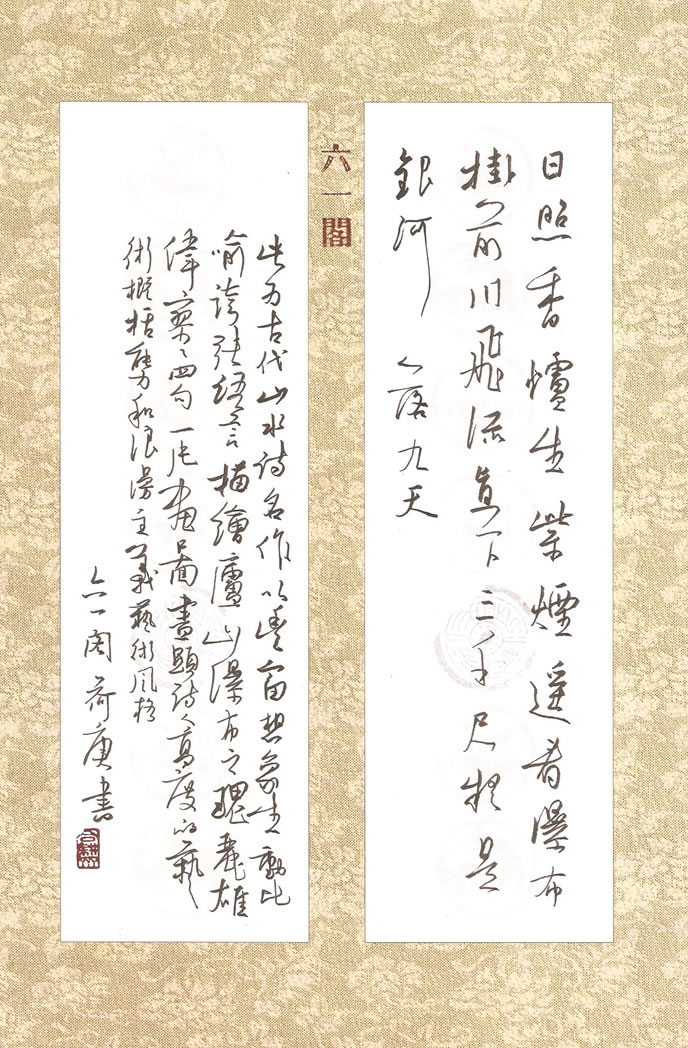 日照香爐生紫煙遥看瀑布
掛前川飛流直下三千尺疑是
銀河落九天
六一閣
此为古代山水詩名作以豐富想象生動比
喻誇張語言描繪廬山瀑布之瑰麗雄
偉寥寥四句一片畫圖盡顯詩人高度的藝
術概括能力和浪漫主義藝術風格
六一阁荷庚書